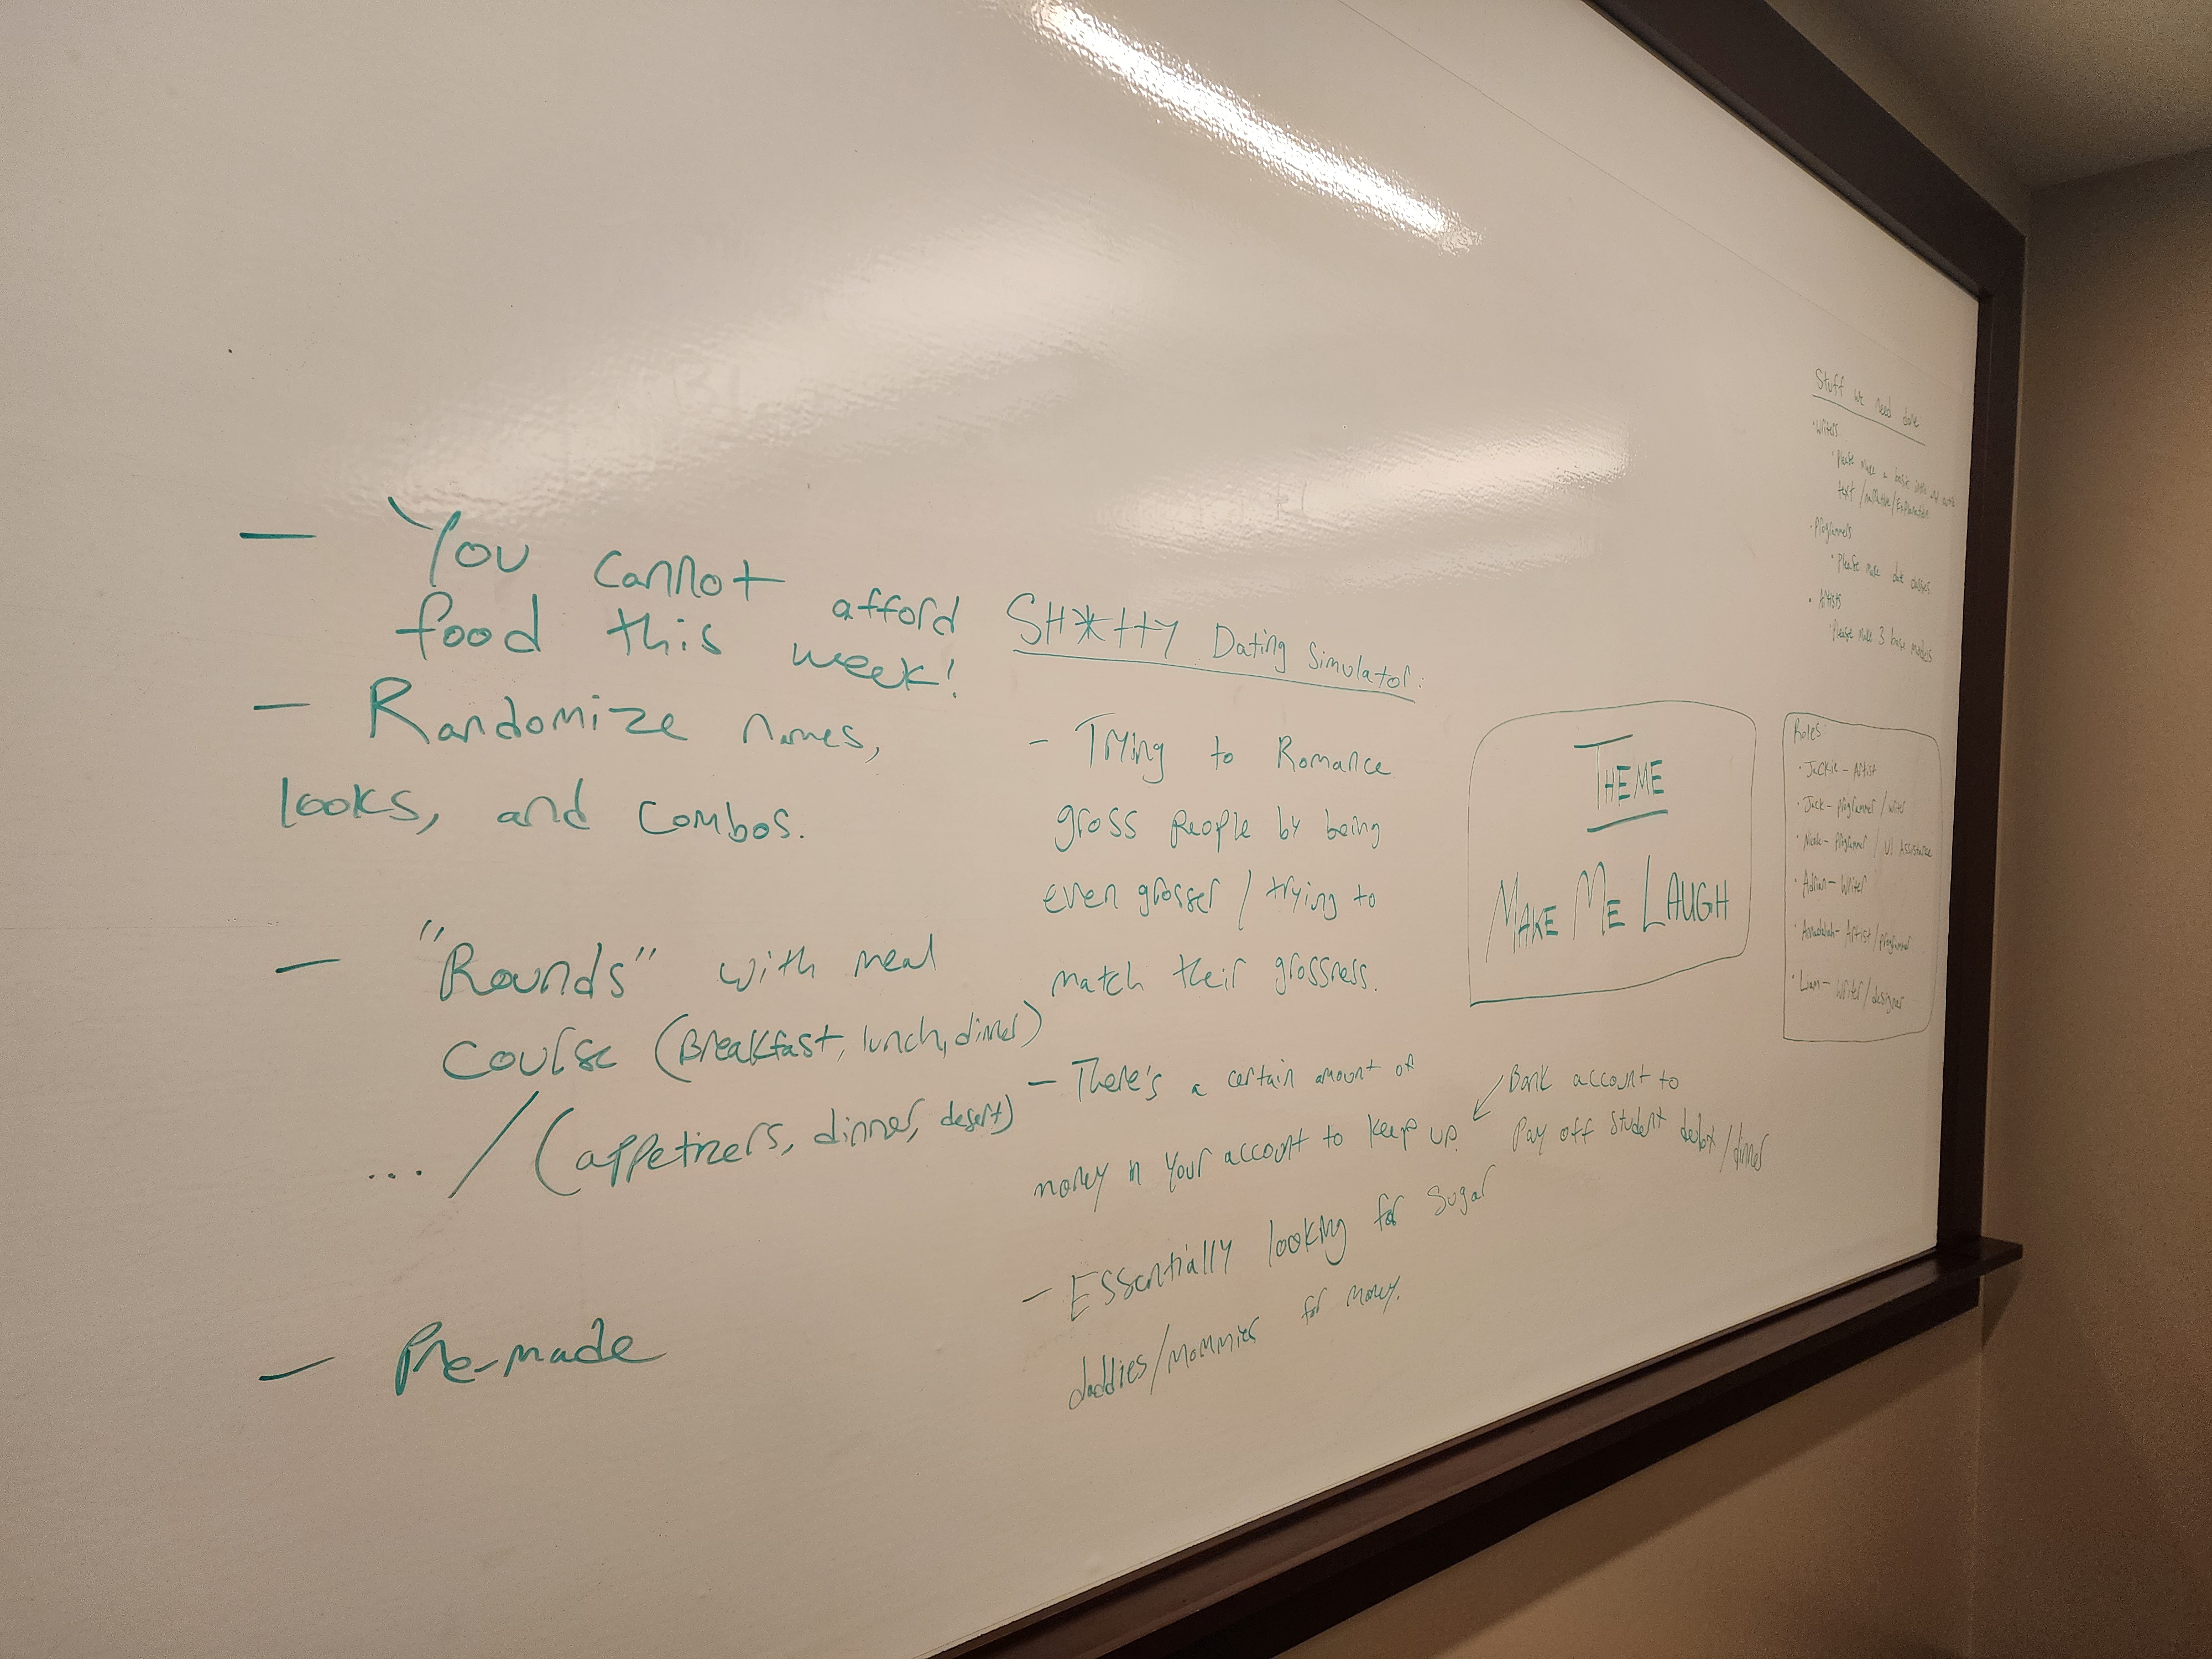 — You cannot afford
food this week!
— Randomize names,
looks, and combos.
— "Rounds" with meal
course (Breakfast, lunch, dinner)
... / (appetizers, dinner, desert)
— Pre-made
SH*tty Dating Simulator:
- Trying to Romance
gross people by being
even grosser / trying to
match their grossness.
- There's a certain amount of
money in your account to keep up.
Bank account to
Pay off student debt/dinner
- Essentially looking for sugar
daddies/mommies for money.
THEME
MAKE ME LAUGH
Stuff we need done
• Writers
• Please make a basic intro
text/narrative/Explanation
• Programmers
• Please make date
• Artists
• Please make 3 base models
Roles:
• Jackie - Artist
• Jack - programmer / writer
• programmer / UI Assistance
• Adrian - Writer
• Artist/programmer
• Liam - writer/designer